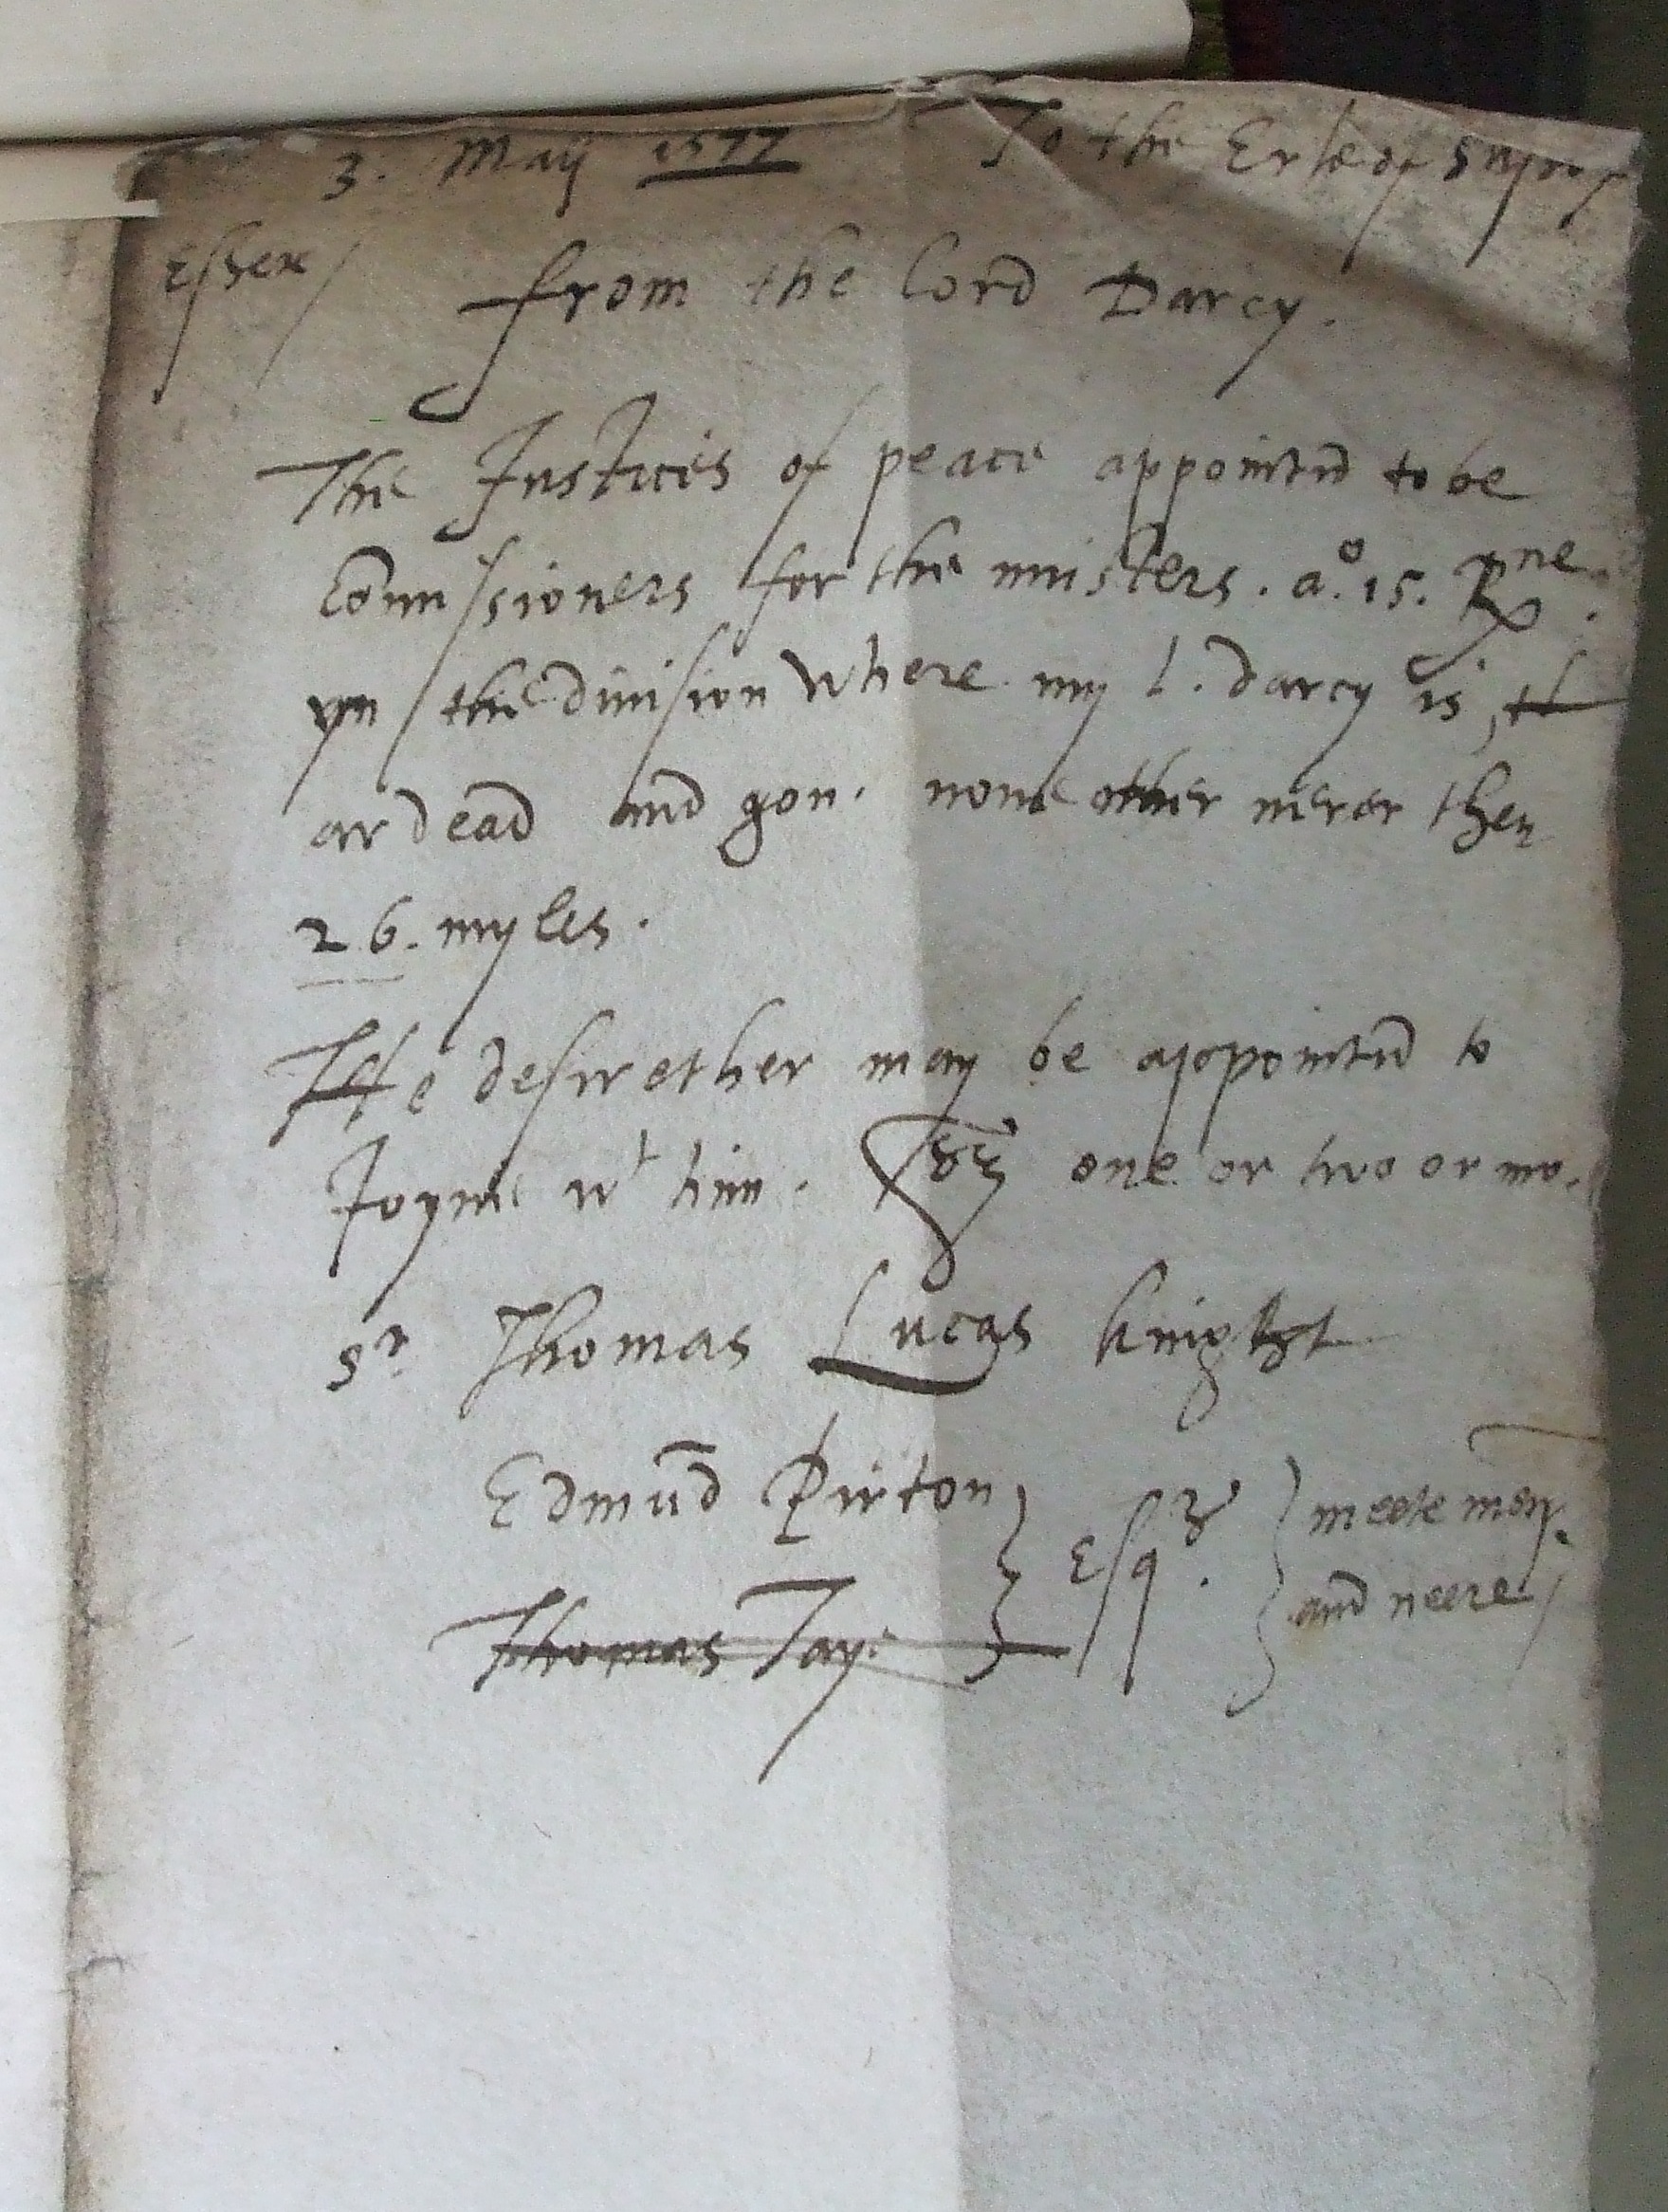 3. Maij 1577 To the Erle of
Essex
from the lord Darcy.
The Justices of peace appointed to be
Commissioners for the musters. ao. 15. Rne.
yn the division where my l. darcy is, th
ar dead and gon. none other nerer then
26. myles.
He desireth er may be appointed to
Joyne wt him. one or two or mo.
Sr Thomas Lucas knight
Edmūd Pirton
Esqr. meete men
and neere
Thomas Tay.